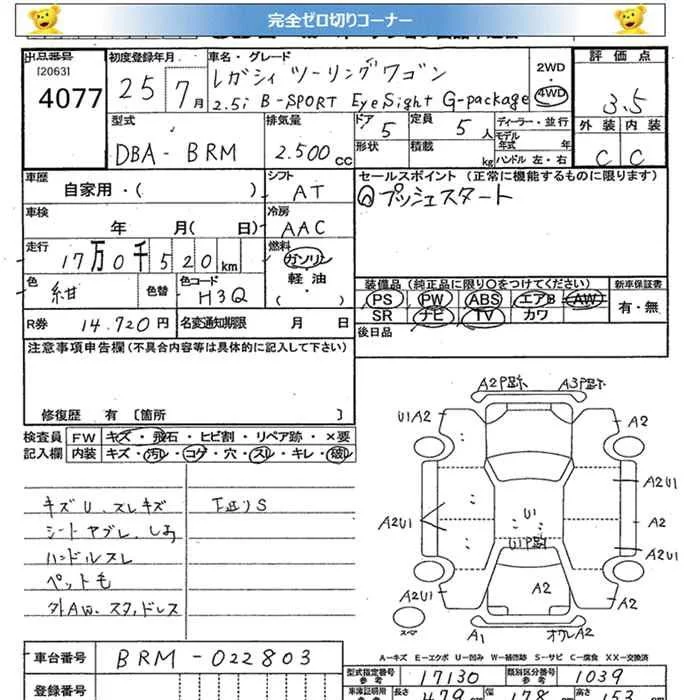 完全ゼロ切りコーナー
出品番号 初度登録年月 車名・グレード 評価点
[2063]
4077 25 7月 レガシィ ツーリングワゴン 2WD・4WD 3.5
2.5i B-SPORT EyeSight G-package
型式 排気量 ドア 定員 ディーラー・並行 外装 内装
DBA-BRM 2.500cc 5 5人 モデル年式 年 C C
形状 積載 kg ハンドル 左・右
車歴 シフト セールスポイント (正常に機能するものに限ります)
自家用・( ) AT プッシュスタート
車検 冷房
年 月( 日) AAC
走行 燃料
17万0千520km ガソリン・軽油・( )
色 色替 色コード 装備品 (純正品に限り〇をつけてください) 新車保証書
紺 H3Q PS PW ABS エアB AW 有・無
SR ナビ TV カワ
R券 14.720円 名変通知期限 月 日 後日品
注意事項申告欄(不具合内容等は具体的に記入して下さい)
修復歴 有 [箇所 ]
検査員 FW キズ・飛石・ヒビ割・リペア跡・×要
記入欄 内装 キズ・汚レ・コゲ・穴・スレ・キレ・破レ
キズU.スレキズ
シートヤブレ.しみ
ハンドルスレ
ペット毛
外AW.スタッドレス
下廻りS
A2P跡 A3P跡
U1A2 A2
A2U1
A2U1 U1 A2
U1P跡 A2U1
A2U1 A2 A2
スペア A1 オワレA2
A-キズ E-エクボ U-凹み W-補修跡 S-サビ C-腐食 XX-交換済
車台番号 BRM-022803
型式指定番号参考 17130 類別区分番号参考 1039
登録番号
車庫証明用参考 長さ 479 幅 178 高さ